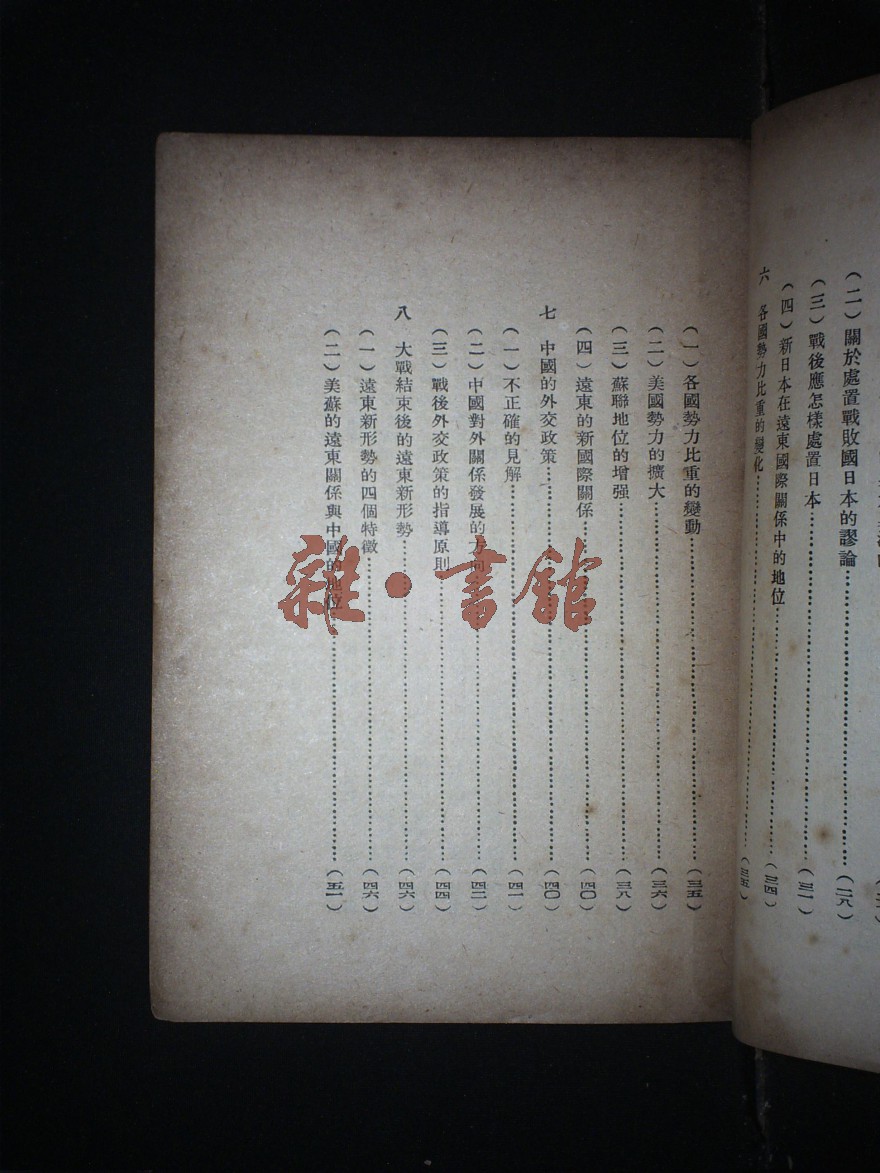 (二)關於處置戰敗國日本的謬論……(二八)
(三)戰後應怎樣處置日本……(三一)
(四)新日本在遠東國際關係中的地位……(三四)
六 各國勢力比重的變化……(三五)
(一)各國勢力比重的變動……(三五)
(二)美國勢力的擴大……(三六)
(三)蘇聯地位的增强……(三八)
(四)遠東的新國際關係……(四〇)
七 中國的外交政策……(四〇)
(一)不正確的見解……(四一)
(二)中國對外關係發展的方向……(四二)
(三)戰後外交政策的指導原則……(四四)
八 大戰結束後的遠東新形勢……(四六)
(一)遠東新形勢的四個特徵……(四六)
(二)美蘇的遠東關係與中國的地位……(五一)
雜·書館